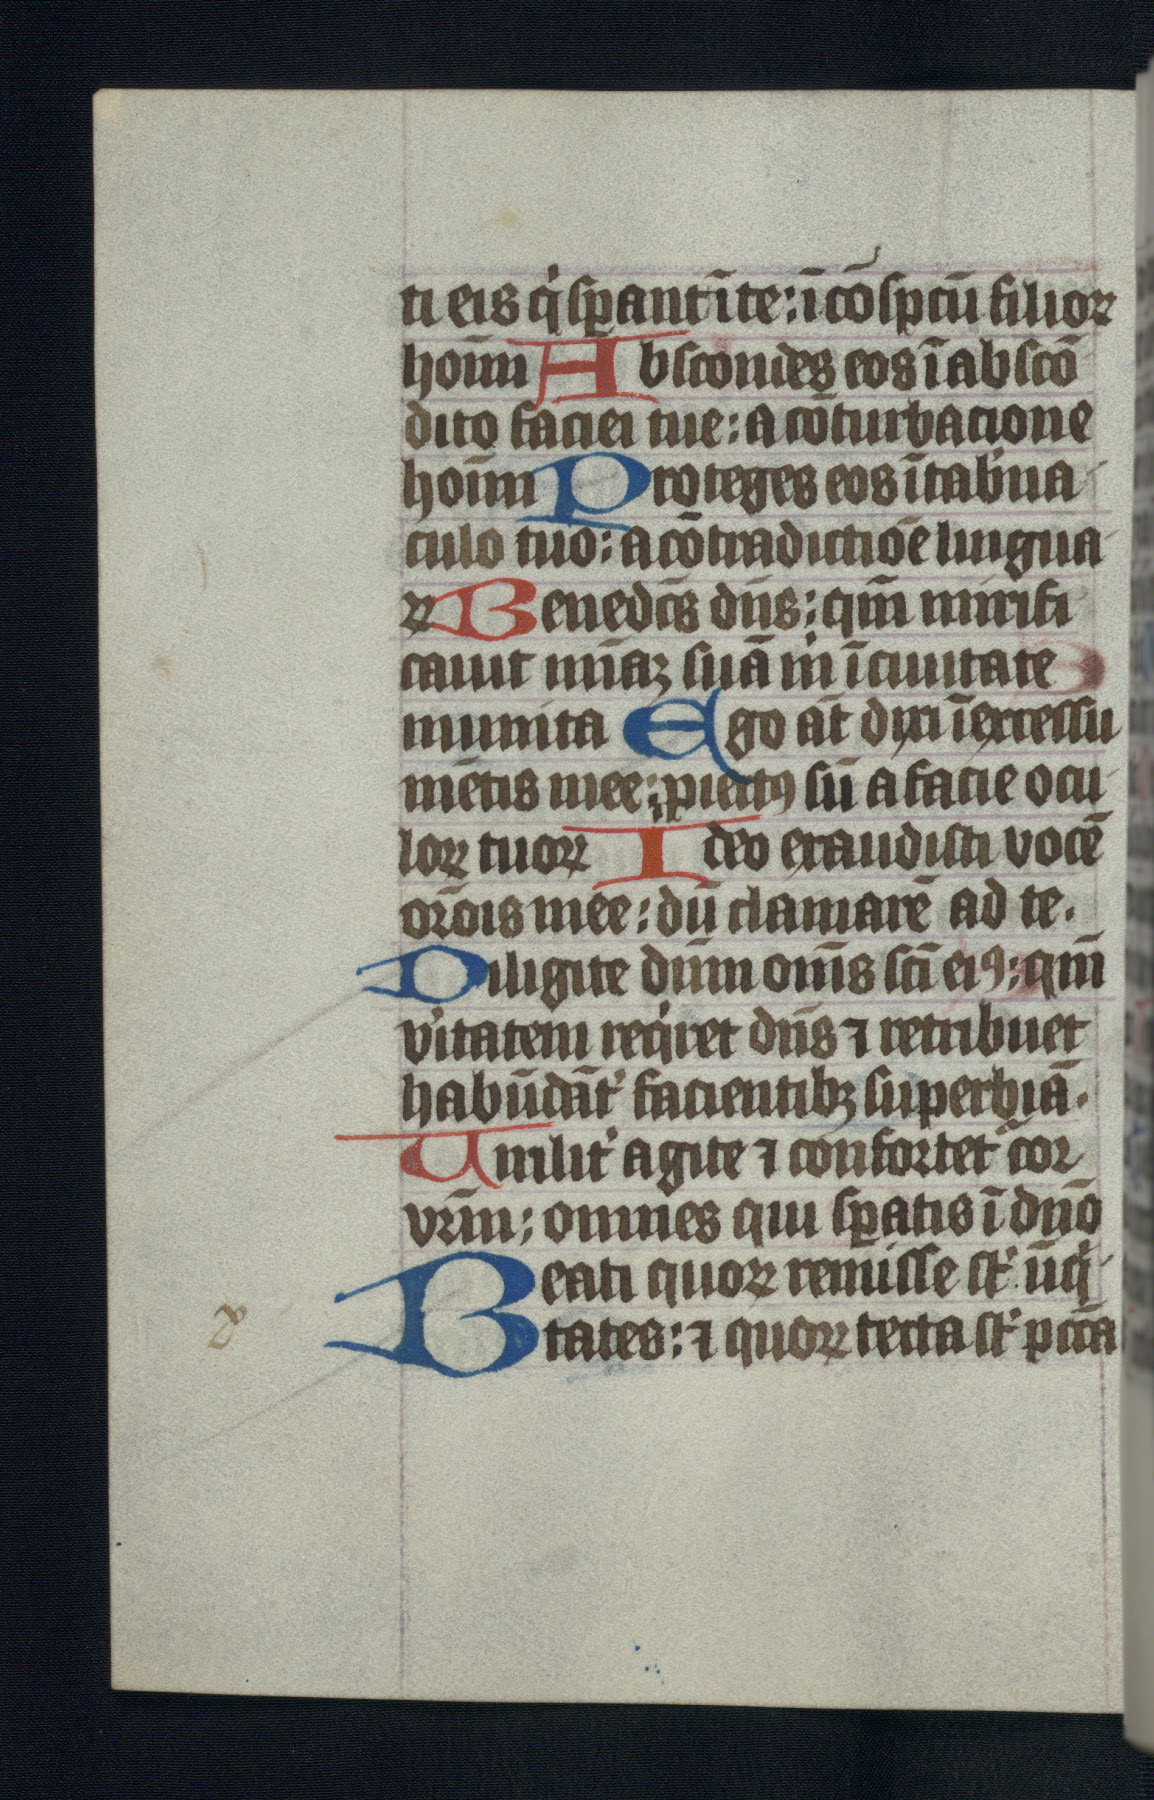 ti eis qͥ sꝑant ī te: ī cōspctū filioꝝ
hoīm Abscondes eos ī abscō
dito faciei tue: a cōturbacione
hoīm Proteges eos ī tab̾na
culo tuo: a cōtradictiōe lingua
ꝝ Benedc̄s dn̄s: qm̄ mirifi
cauit mīaꝫ suā m̓ ī ciuitate
munita Ego aūt dixi ī excessu
mētis mee: ꝓiectꝰ sū a facie ocu
loꝝ tuoꝝ Ideo exaudisti vocē
or̄ois mee: dū clamarē ad te.
Diligite dn̄m om̄s sc̄i eiꝰ: qm̄
v̾itatem reqͥret dn̄s ⁊ retribuet
habūdāt̓ facientibꝫ superbiā.
Uirilit̓ agite ⁊ confortet̓ cor
vr̄m: omnes qui sꝑatis ī dn̄o
Beati quoꝝ remisse st̓ īiqͥ
tates: ⁊ quoꝝ tecta st̓ pcc̄a